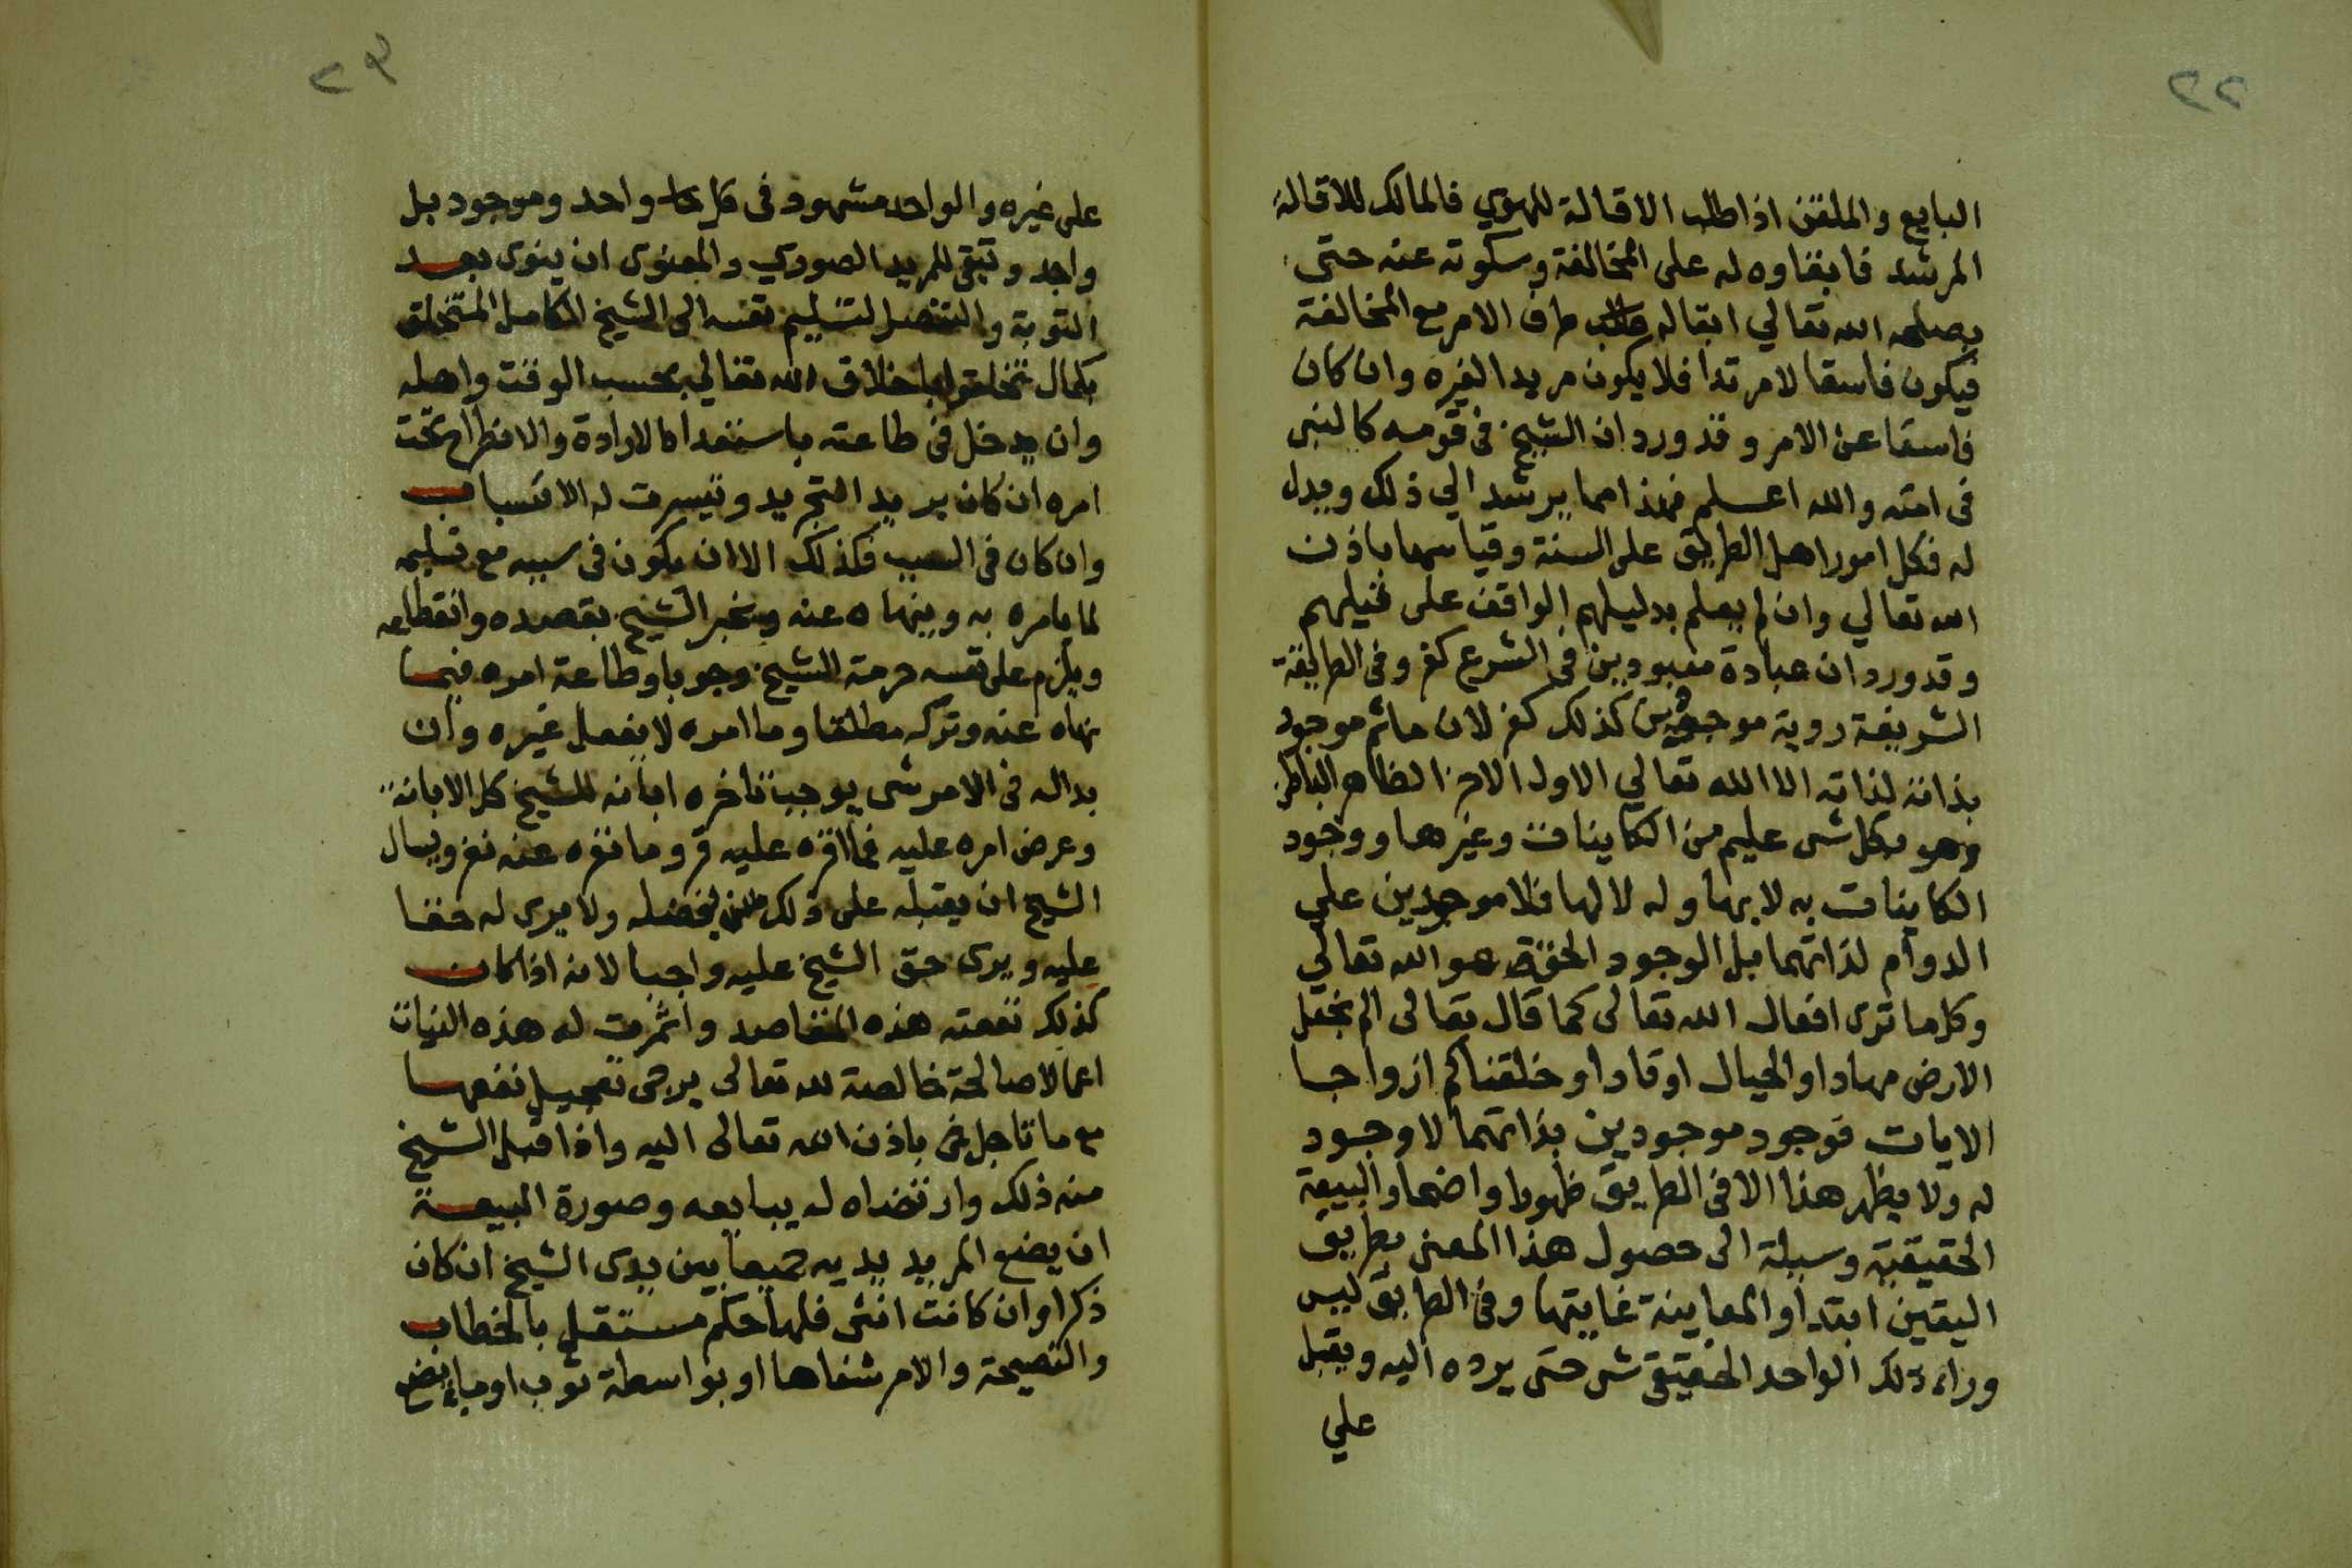 ٢٢
البايع والملقن اذا طلب الاقالة للهوي فالمالك للاقالة
المرشد فابقاوه له على المخالفة وسكوته عنه حتى
يصلحه الله تعالي ابقا له طرف الامر مع المخالفة
فيكون فاسقا لا مرتدا فلا يكون مريدا لغيره وان كان
فاسقا عن الامر وقد ورد ان الشيخ في قومه كالنبي
في امته والله اعلم فهذا مما يرشد الي ذلك ويدل
له فكل امور اهل الطريق على السنة وقياسها باذن
الله تعالي وان لم يعلم بدليلهم الواقف على
وقد ورد ان عبادة معبودين في الشرع كفر وفي الطريقة
الشريفة روية موجودين كذلك كفر لان ماثم موجود
بذاته لذاته الا الله تعالي الاول الاخر الظاهر الباطن
وهو بكل شي عليم من الكاينات وغيرها ووجود
الكاينات به لا بها وله لا لها فلا موجودين علي
الدوام لذاتهما بل الوجود الحق هو الله تعالي
وكل ما ترى افعال الله تعالى كما قال تعالى الم نجعل
الارض مهادا والجبال اوتادا وخلقناكم ازواجا
الايات فوجود موجودين بذاتهما لا وجود
له ولا يظهر هذا الا في الطريق ظهورا واضحا والبيعة
الحقيقية وسيلة الى حصول هذا المعنى بطريق
اليقين ابتدا والمعاينة غايتها وفي الطريق ليس
وراء ذلك الواحد الحقيقي شي حتى يرده اليه ويقبل
علي
٢٣
على غيره والواحد مشهود في كل واحد وموجود بل
واجد وتبقى للمريد الصوري والمعنوى ان ينوى بعد
التوبة والتنصل لتسليم نفسه الى الشيخ الكامل المتخلق
بكمال تخلقوا باخلاق الله تعالي بحسب الوقت واهله
وان يدخل في طاعته باستعداد الارادة والانطراح تحت
امره ان كان يريد التجريد وتيسرت له الاسباب
وان كان في السبب فكذلك الا ان يكون في سببه مع تسليمه
لما يامره به وينهاه عنه ويخبر الشيخ بقصده وانقطاعه
ويلزم على نفسه حرمة الشيخ وجوبا وطاعة امره فيما
نهاه عنه وتركه مطلقا وما امره لا يفعل غيره وان
بدا له في الامر شي يوجب تاخره ابانه للشيخ كل الابانة
وعرض امره عليه فما اقره عليه قر وما نفره عنه نفر ويسال
الشيخ ان يقبله على ذلك بفضله ولا يرى له حقا
عليه ويرى حق الشيخ عليه واجبا لانه اذا كان
كذلك نفعته هذه المقاصد واثمرت له هذه النيات
اعمالا صالحة خالصة لله تعالى يرجى تعجيل نفعها
مع ما تاجل باذن الله تعالى اليه واذا قبل الشيخ
منه ذلك وارتضاه له يبايعه وصورة البيعة
ان يضع المريد يديه جميعا بين يدى الشيخ ان كان
ذكرا وان كانت انثى فلها حكم مستقل بالخطاب
والنصيحة والامر شفاها او بواسطة ثوب او يضع